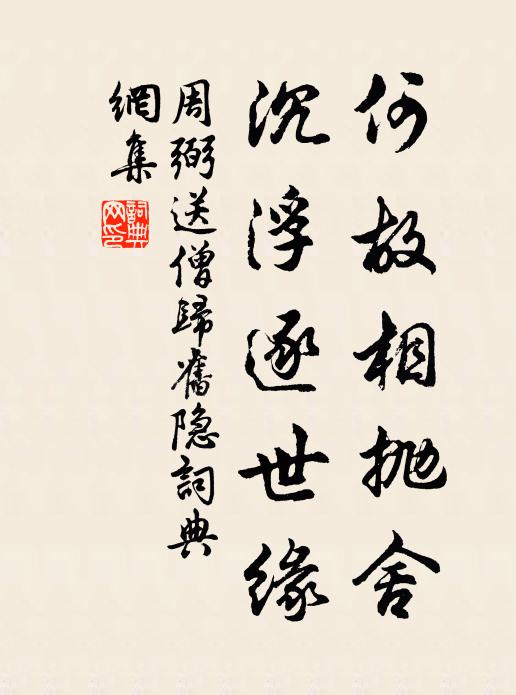 何故相抛舍
沉浮逐世緣
周弼送僧歸舊隐詞典
網集
詞典
网印